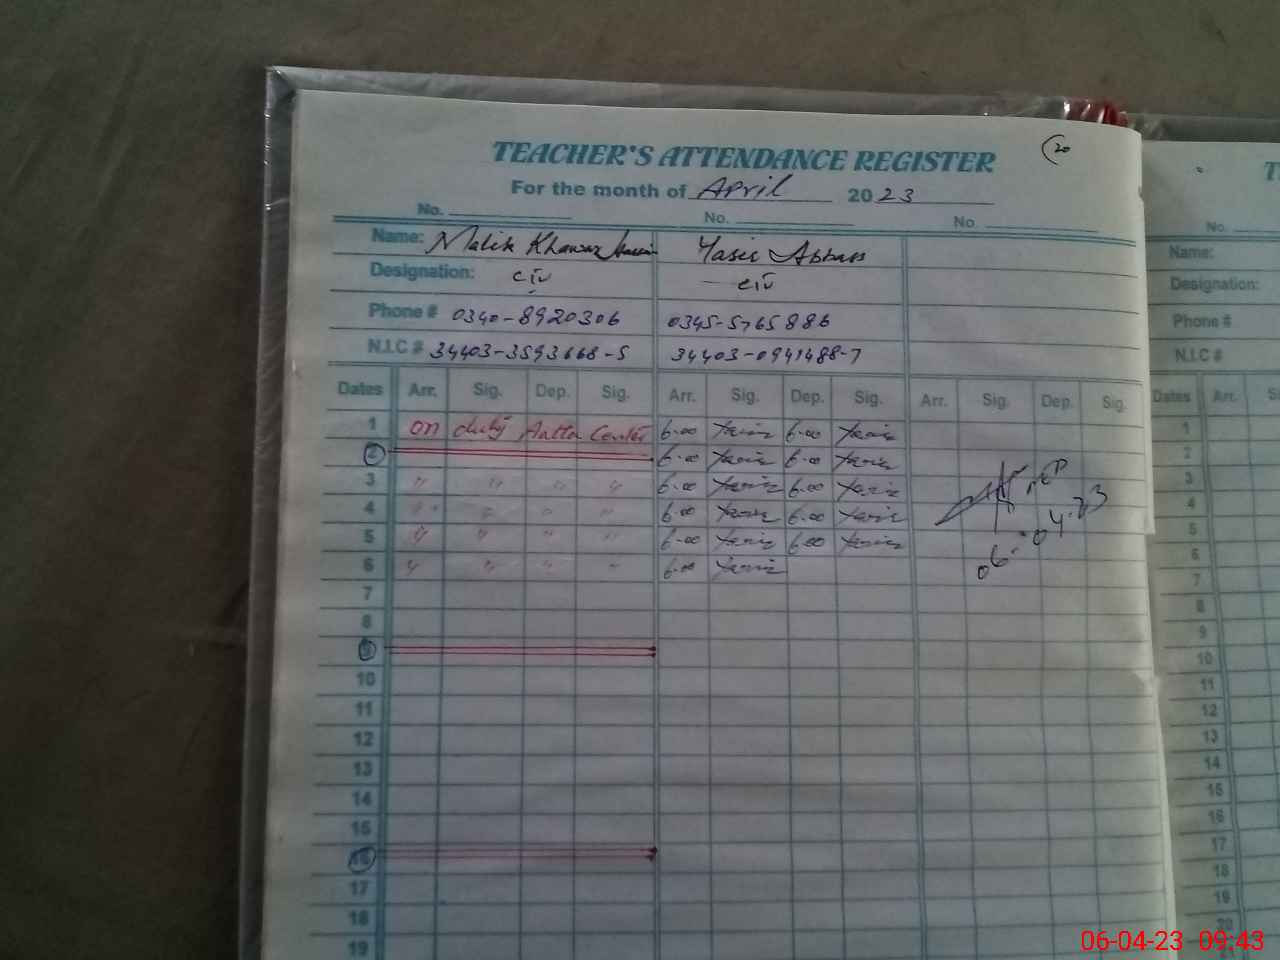 20
TEACHER'S ATTENDANCE REGISTER
For the month of April 2023
No. No. No.
Name: Malik Khawar Yasir Abbass
Designation: CIV CIV
Phone # 0340-8920306 0345-5765886
N.I.C # 34403-3593668-5 34403-0941488-7
Dates Arr. Sig. Dep. Sig. Arr. Sig. Dep. Sig. Arr. Sig. Dep. Sig.
1 on duty Aatta Center 6.00 Yasir 6.00 Yasir
2 6.00 Yasir 6.00 Yasir
3 " " " " 6.00 Yasir 6.00 Yasir
4 " " " " 6.00 Yasir 6.00 Yasir
5 " " " " 6.00 Yasir 6.00 Yasir
6 " " " " 6.00 Yasir
06-04-23
7
8
9
10
11
12
13
14
15
16
17
18
19
No.
Name:
Designation:
Phone #
N.I.C #
Dates Arr.
1
2
3
4
5
6
7
8
9
10
11
12
13
14
15
16
17
18
19
20
06-04-23 09:43